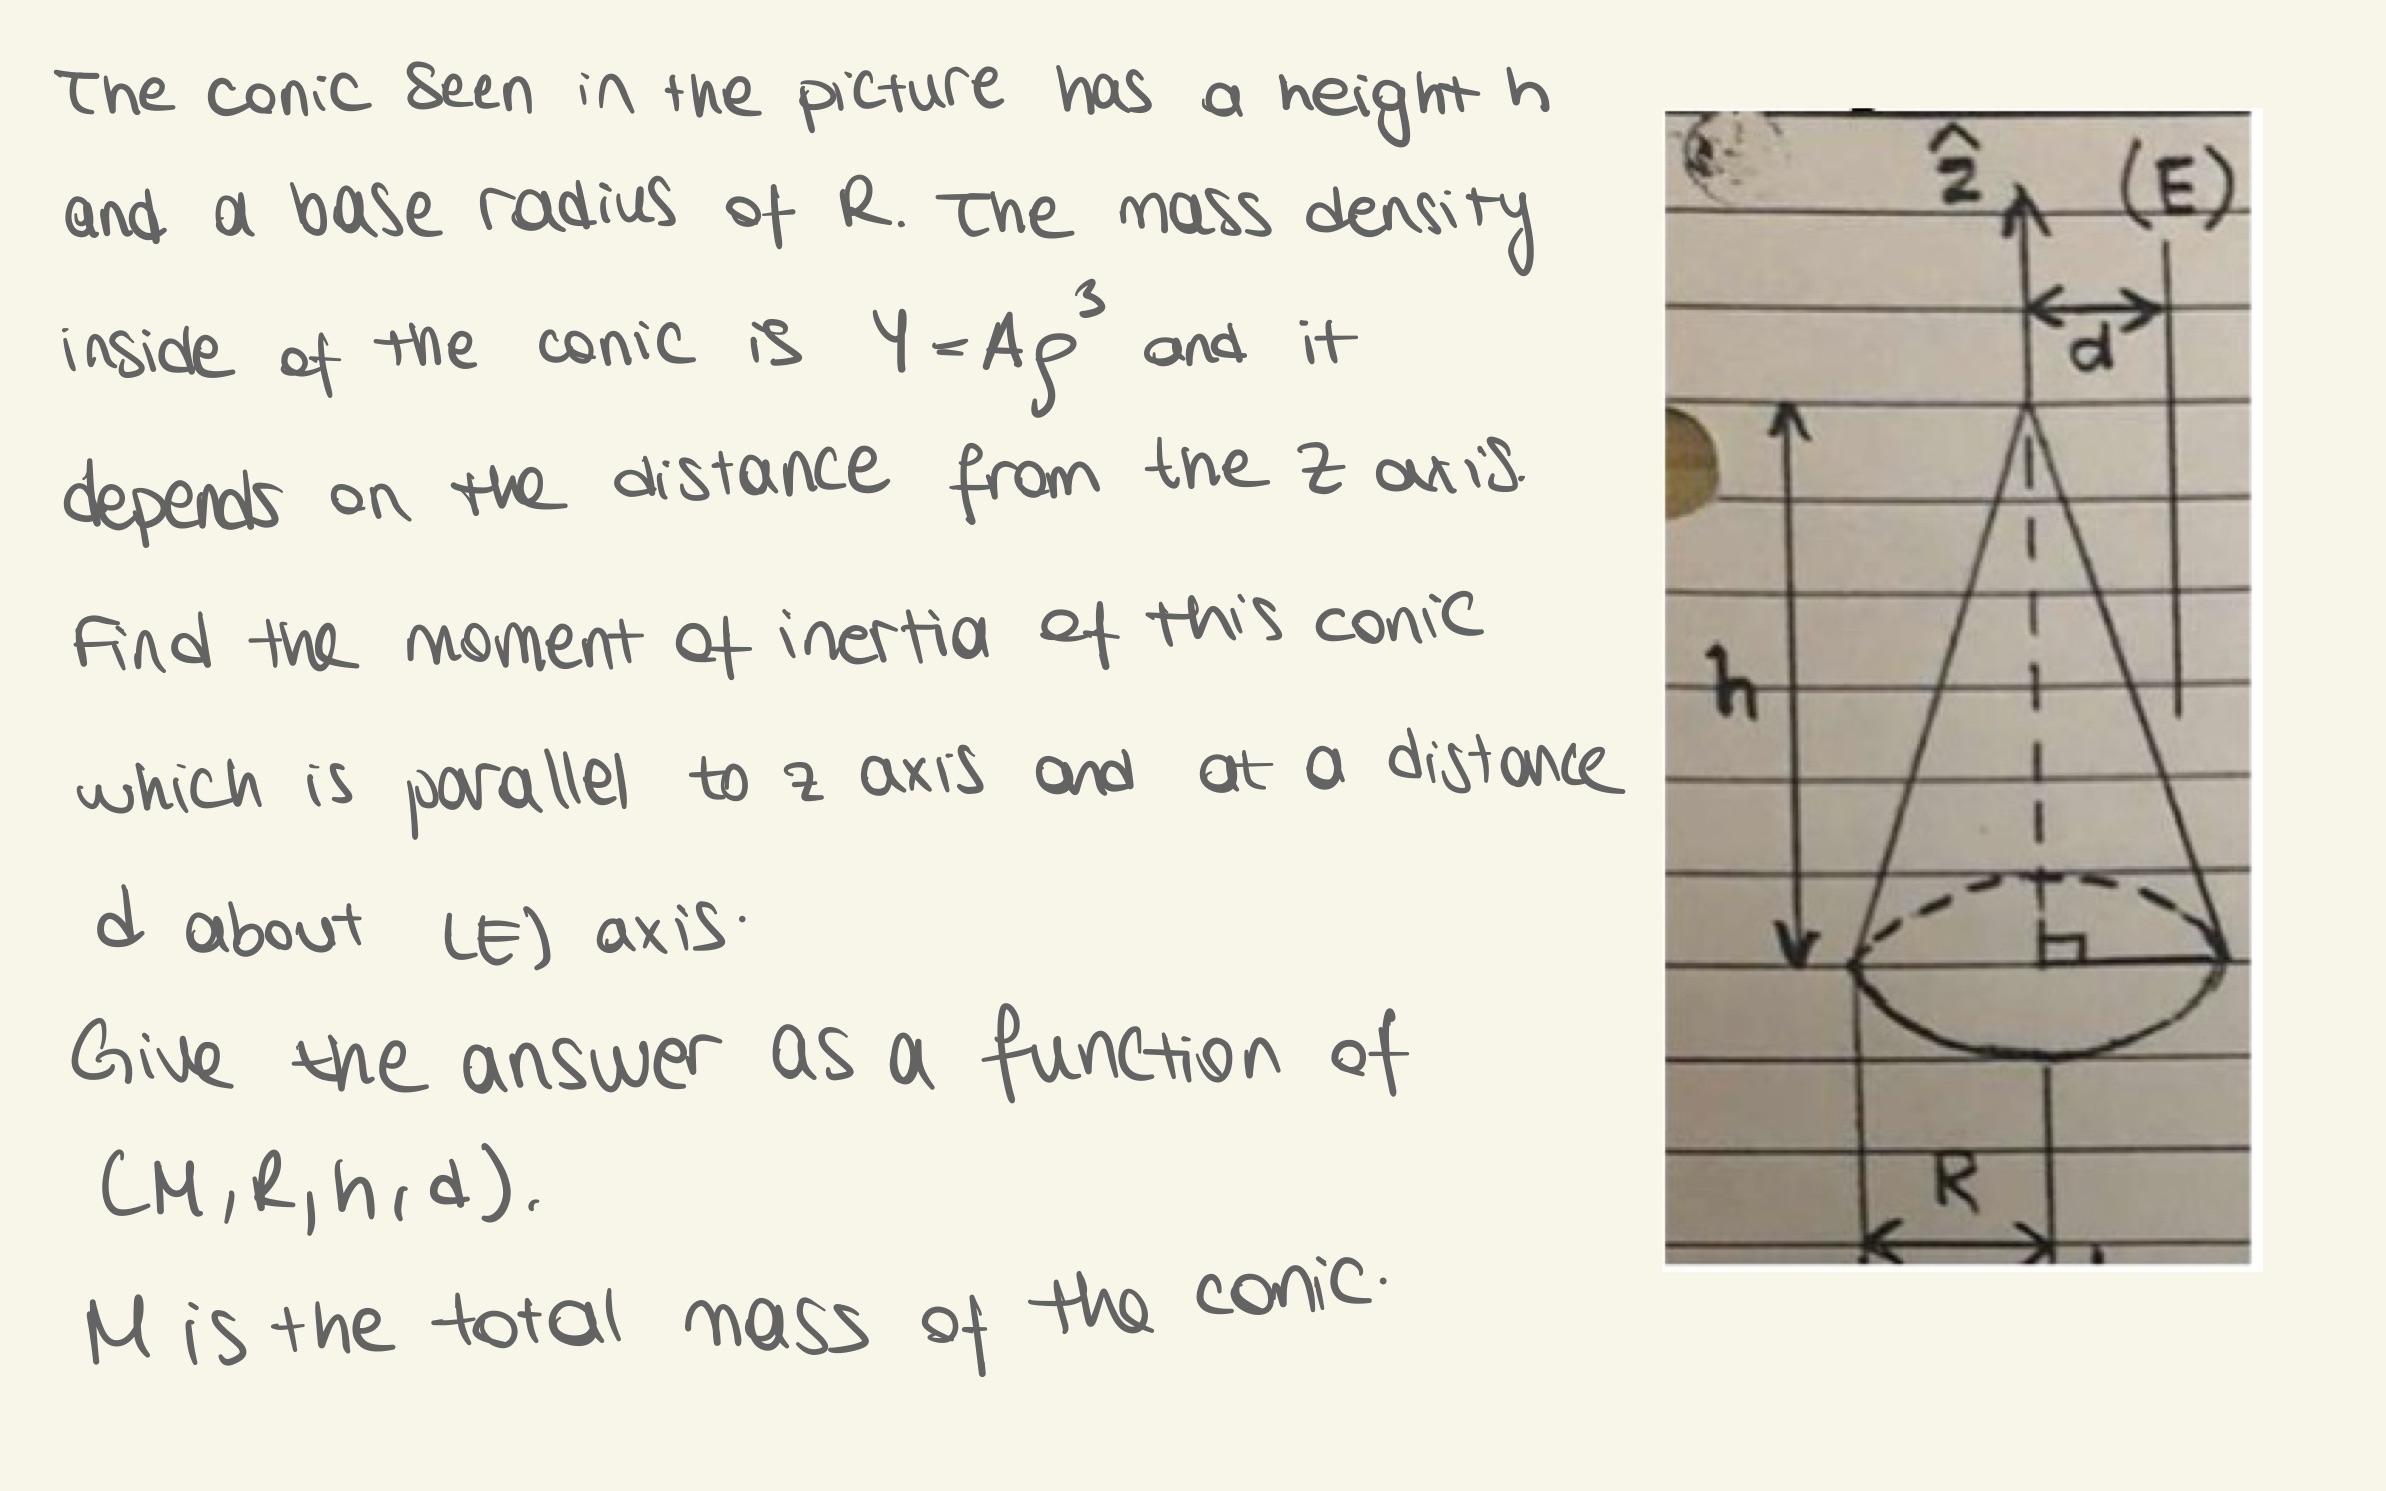 The conic seen in the picture has a height h
and a base radius of R. The mass density
inside of the conic is Y=Aρ³ and it
depends on the distance from the z axis.
Find the moment of inertia of this conic
which is parallel to z axis and at a distance
d about (E) axis.
Give the answer as a function of
(M, R, h, d).
M is the total mass of the conic.
ẑ (E)
d
h
R